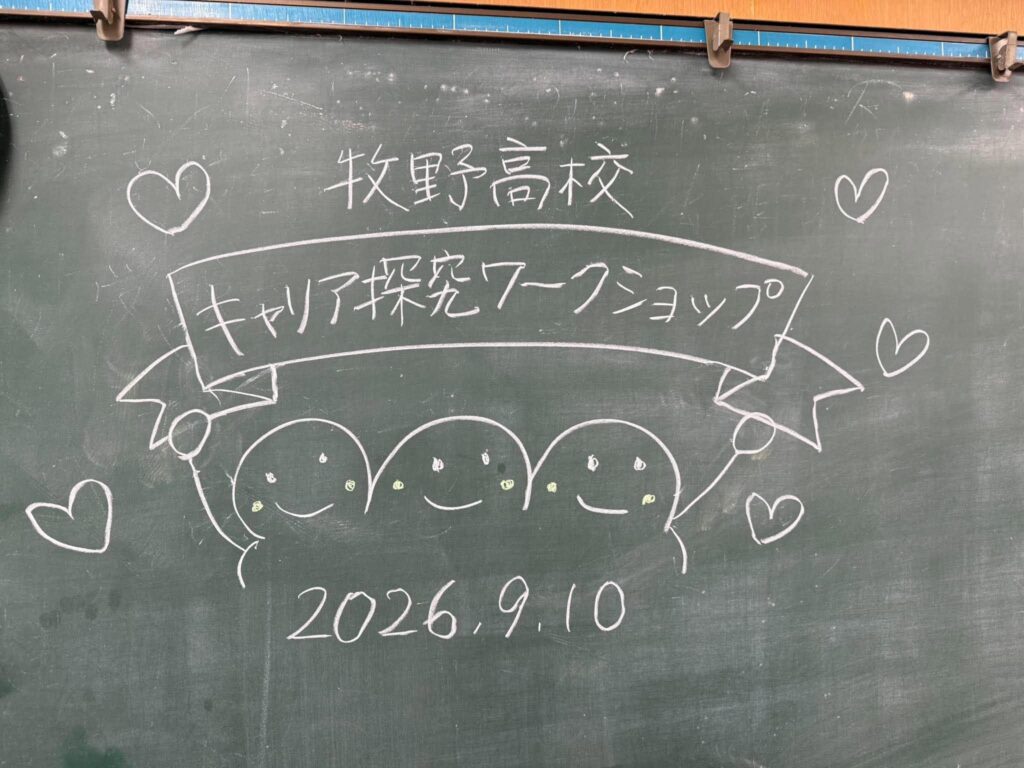 牧野高校
キャリア探究ワークショップ
2026.9.10